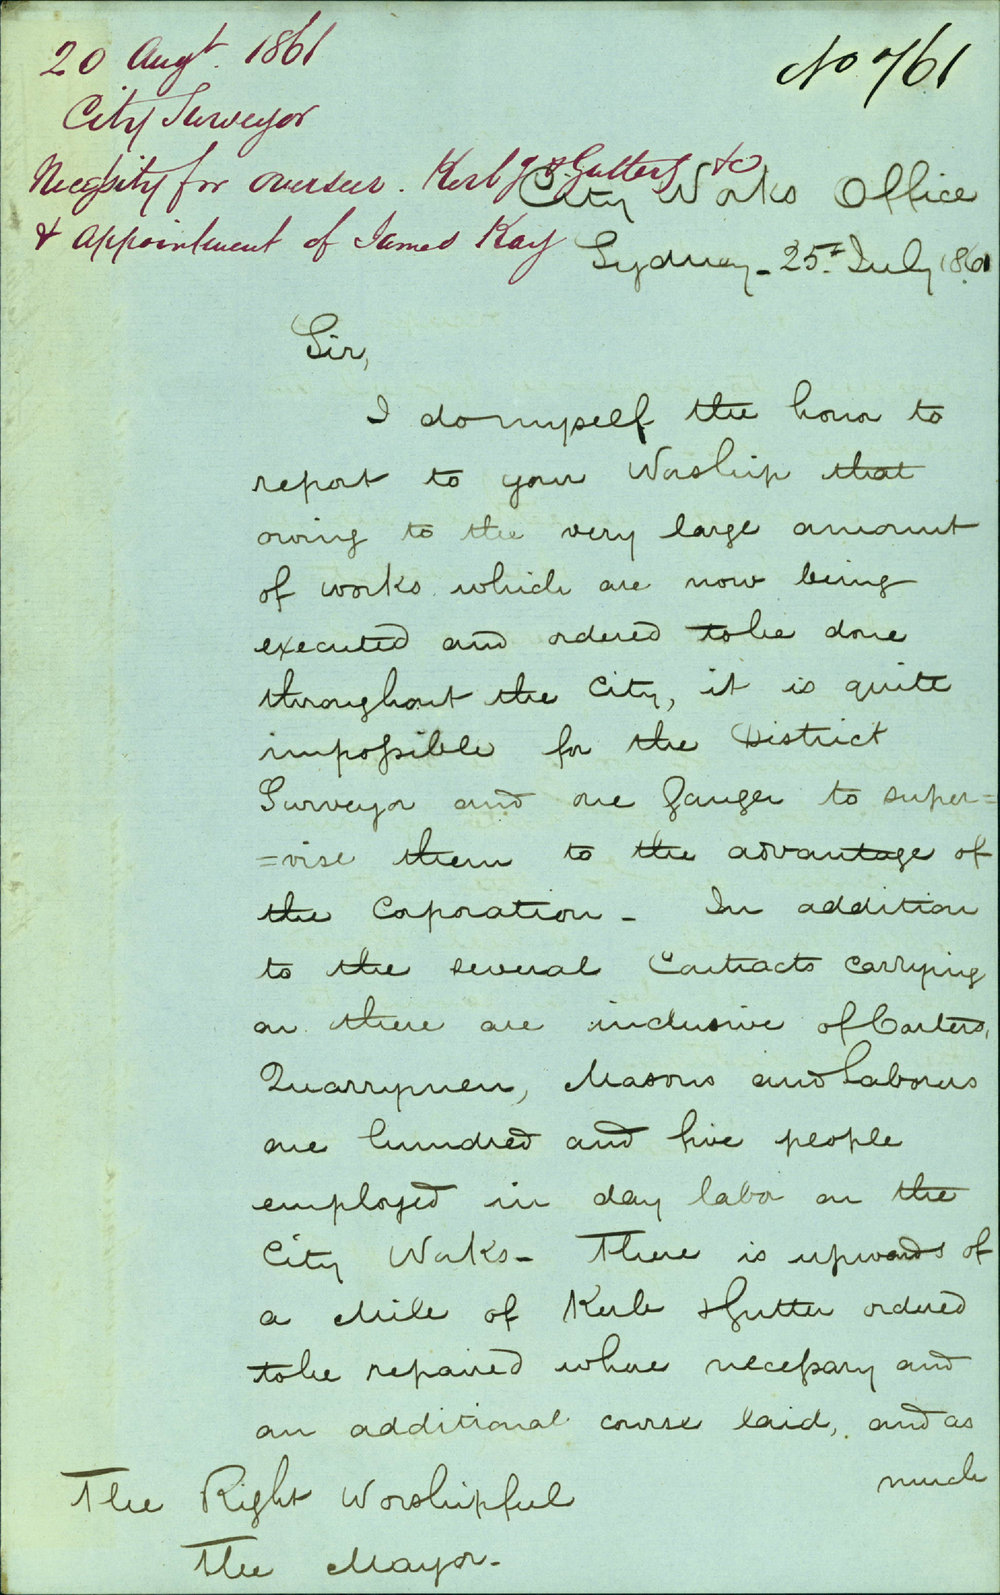 20 Augt. 1861
No 761
City Surveyor
Necessity for overseer. Kerb & Gutters &c
& appointment of James Kay
City Works Office
Sydney - 25th July 1861
Sir,
I do myself the honor to
report to your Worship that
owing to the very large amount
of works which are now being
executed and ordered to be done
throughout the City, it is quite
impossible for the District
Surveyor and one Ganger to super=
=vise them to the advantage of
the Corporation - In addition
to the several Contracts carrying
on there are inclusive of Carters,
Quarrymen, Masons and Laborers
one hundred and five people
employed in day labor on the
City Works - There is upwards of
a Mile of Kerb & Gutter ordered
to be repaired where necessary and
an additional course laid, and as
much
The Right Worshipful
The Mayor -